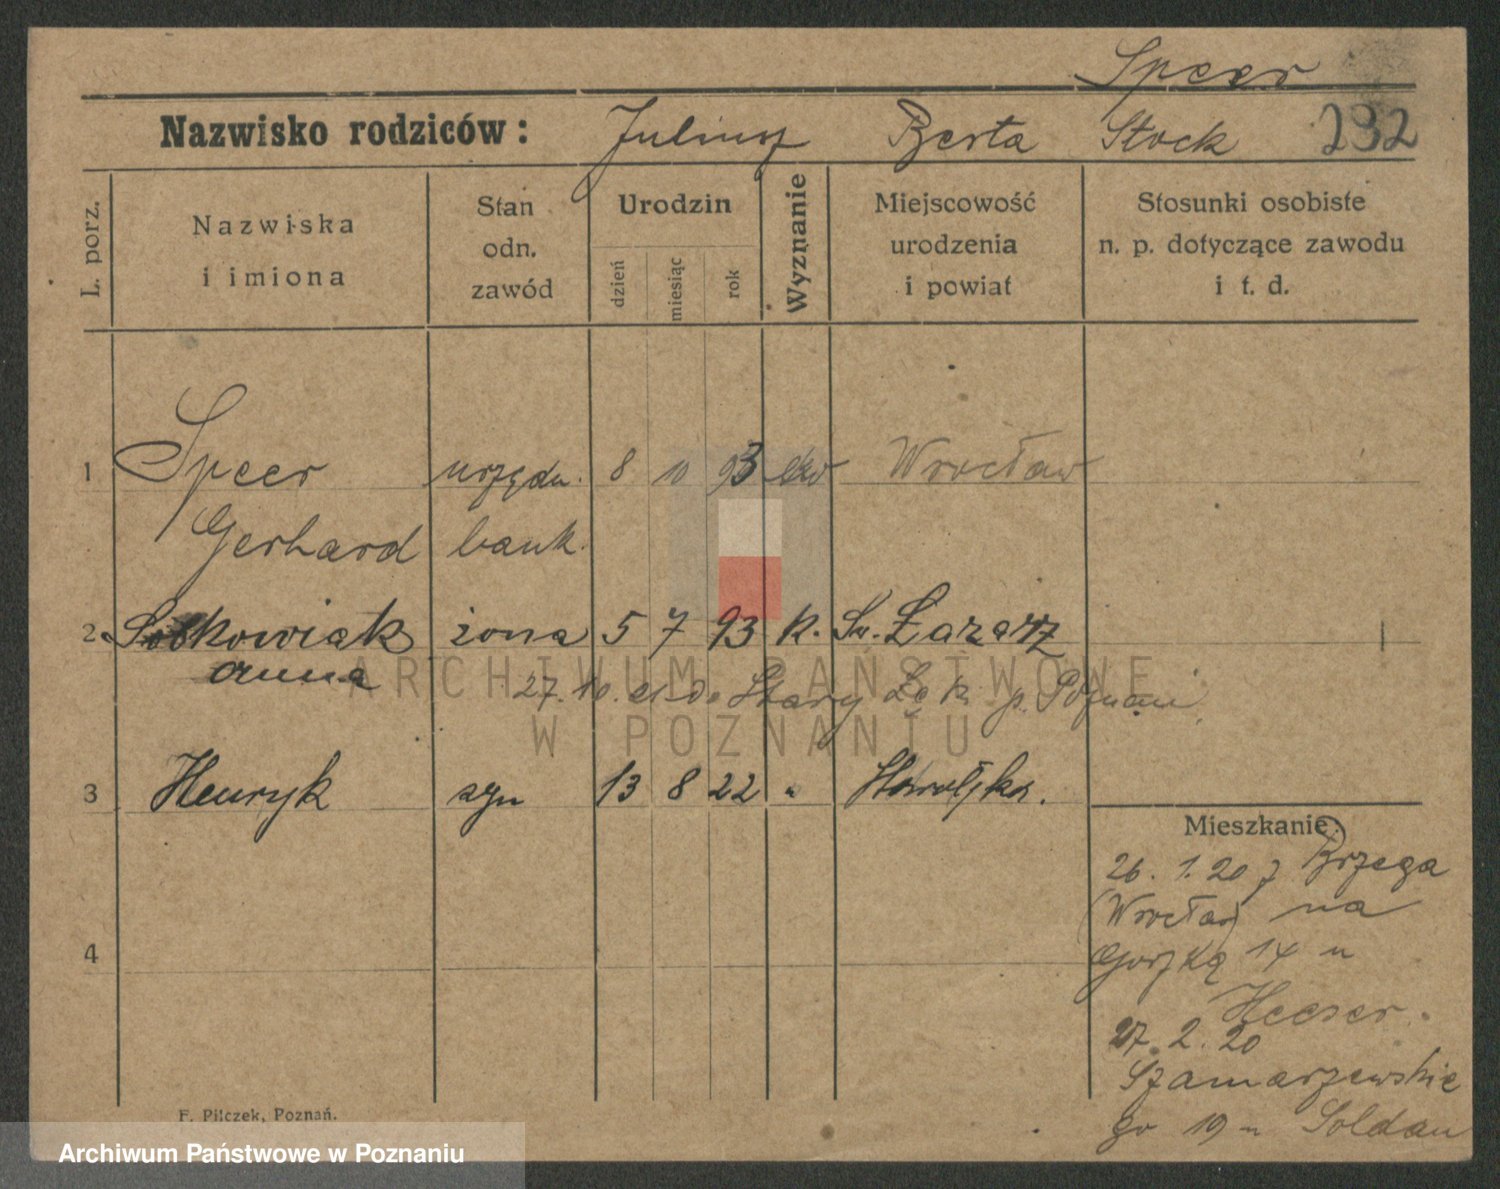 Speer
Nazwisko rodziców: Juliusz Berta Stock 232
L. porz.
Nazwiska
i imiona
Stan
odn.
zawód
Urodzin
dzień
miesiąc
rok
Wyznanie
Miejscowość
urodzenia
i powiat
Stosunki osobiste
n. p. dotyczące zawodu
i t. d.
1 Speer urzędn. 8 10 93 ew Wrocław
Gerhard bank.
2 Sobkowiak żona 5 7 93 k. Św. Łazarz
Anna
27.10. do Stary p. Poznań
3 Henryk syn 13 8 22 "
4
Mieszkanie:
26. 1. 20 z Brzega
(Wrocław) na
Gorzką 14 u
Heeser.
27. 2. 20
Szamarzewskie
go 19 u Soldau
F. Pilczek, Poznań.
ARCHIWUM PAŃSTWOWE
W POZNANIU
Archiwum Państwowe w Poznaniu